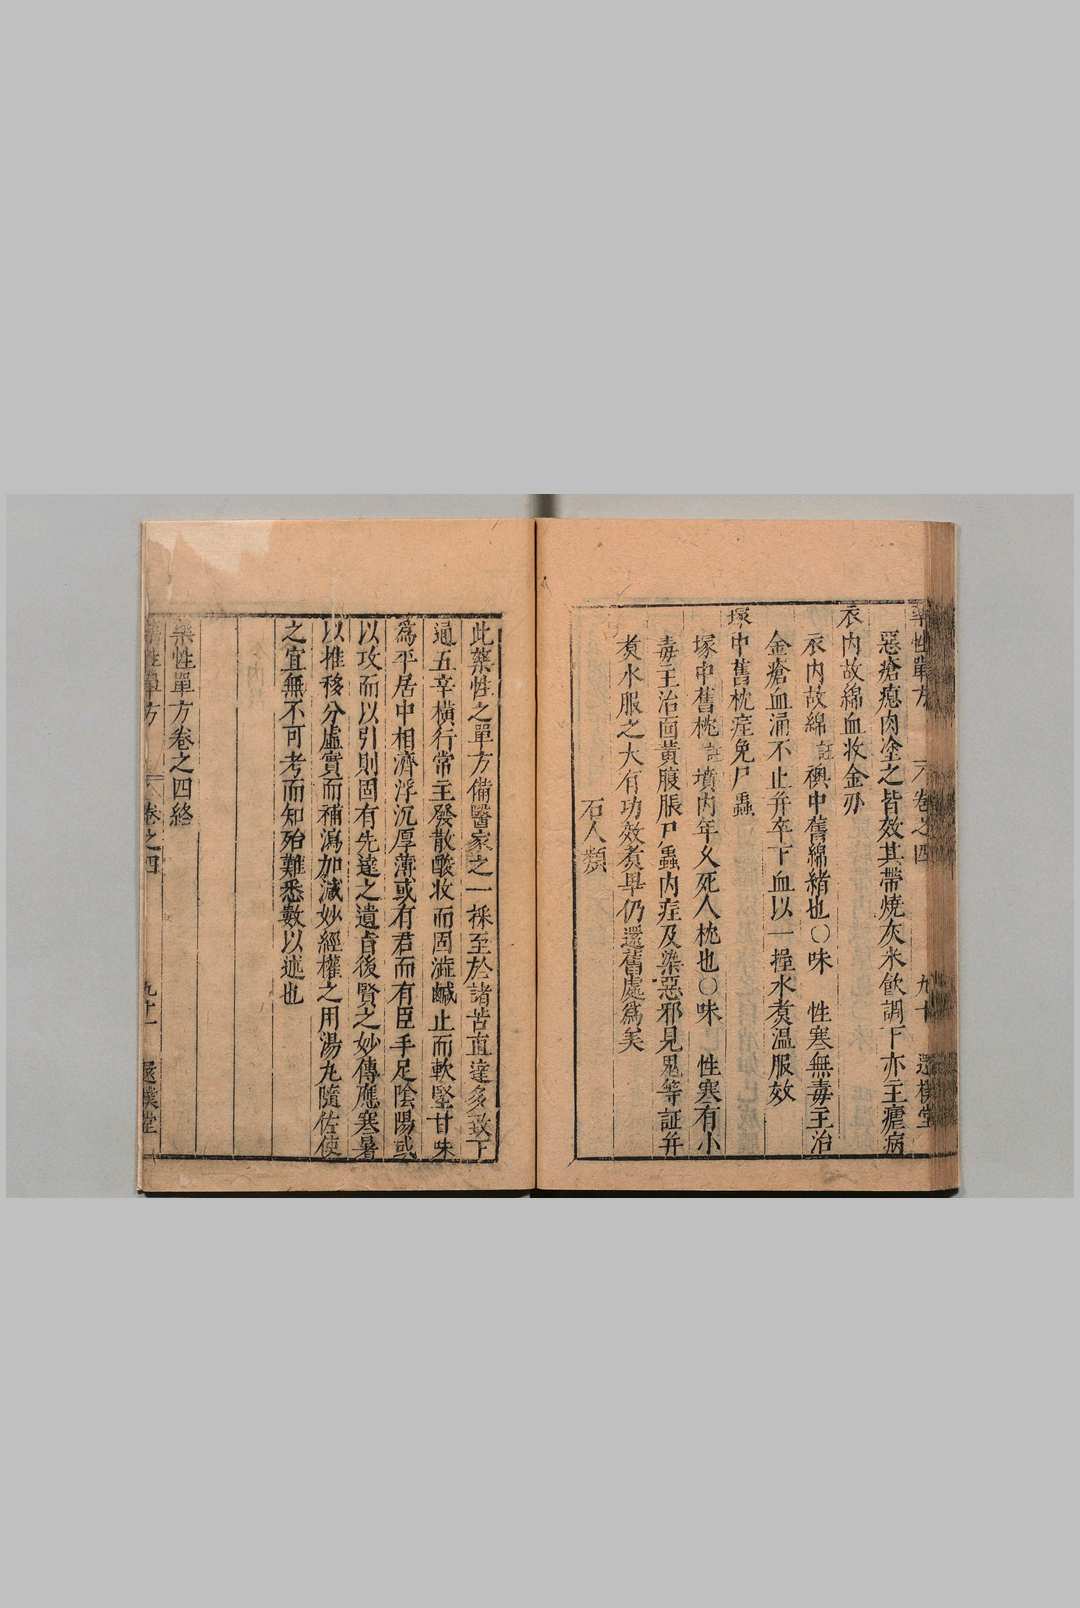 藥性單方 卷之四 九十 還樸堂
惡瘡瘜肉塗之皆效其帶燒灰米飲調下亦主瘧病
衣内故綿血收金刅
衣内故綿註襖中舊綿緒也○味 性寒無毒主治
金瘡血涌不止并卒下血以一握水煑温服效
塚中舊枕症免尸蟲
塚中舊枕註墳内年久死人枕也○味 性寒有小
毒主治面黄腹脹尸蟲内症及染惡邪見鬼等証并
煑水服之大有功效煑畢仍還舊處爲美
石人類
此藥性之單方備醫家之一採至於諸苦直達多致下
通五辛橫行常主發散酸收而固澁鹹止而軟堅甘味
爲平居中相濟浮沉厚薄或有君而有臣手足陰陽或
以攻而以引則固有先達之遺㫖後賢之妙傳應寒暑
以推移分虛實而補瀉加减妙經權之用湯丸隨佐使
之宜無不可考而知殆難悉數以述也
藥性單方卷之四終
藥性單方 卷之四 九十一 還樸堂